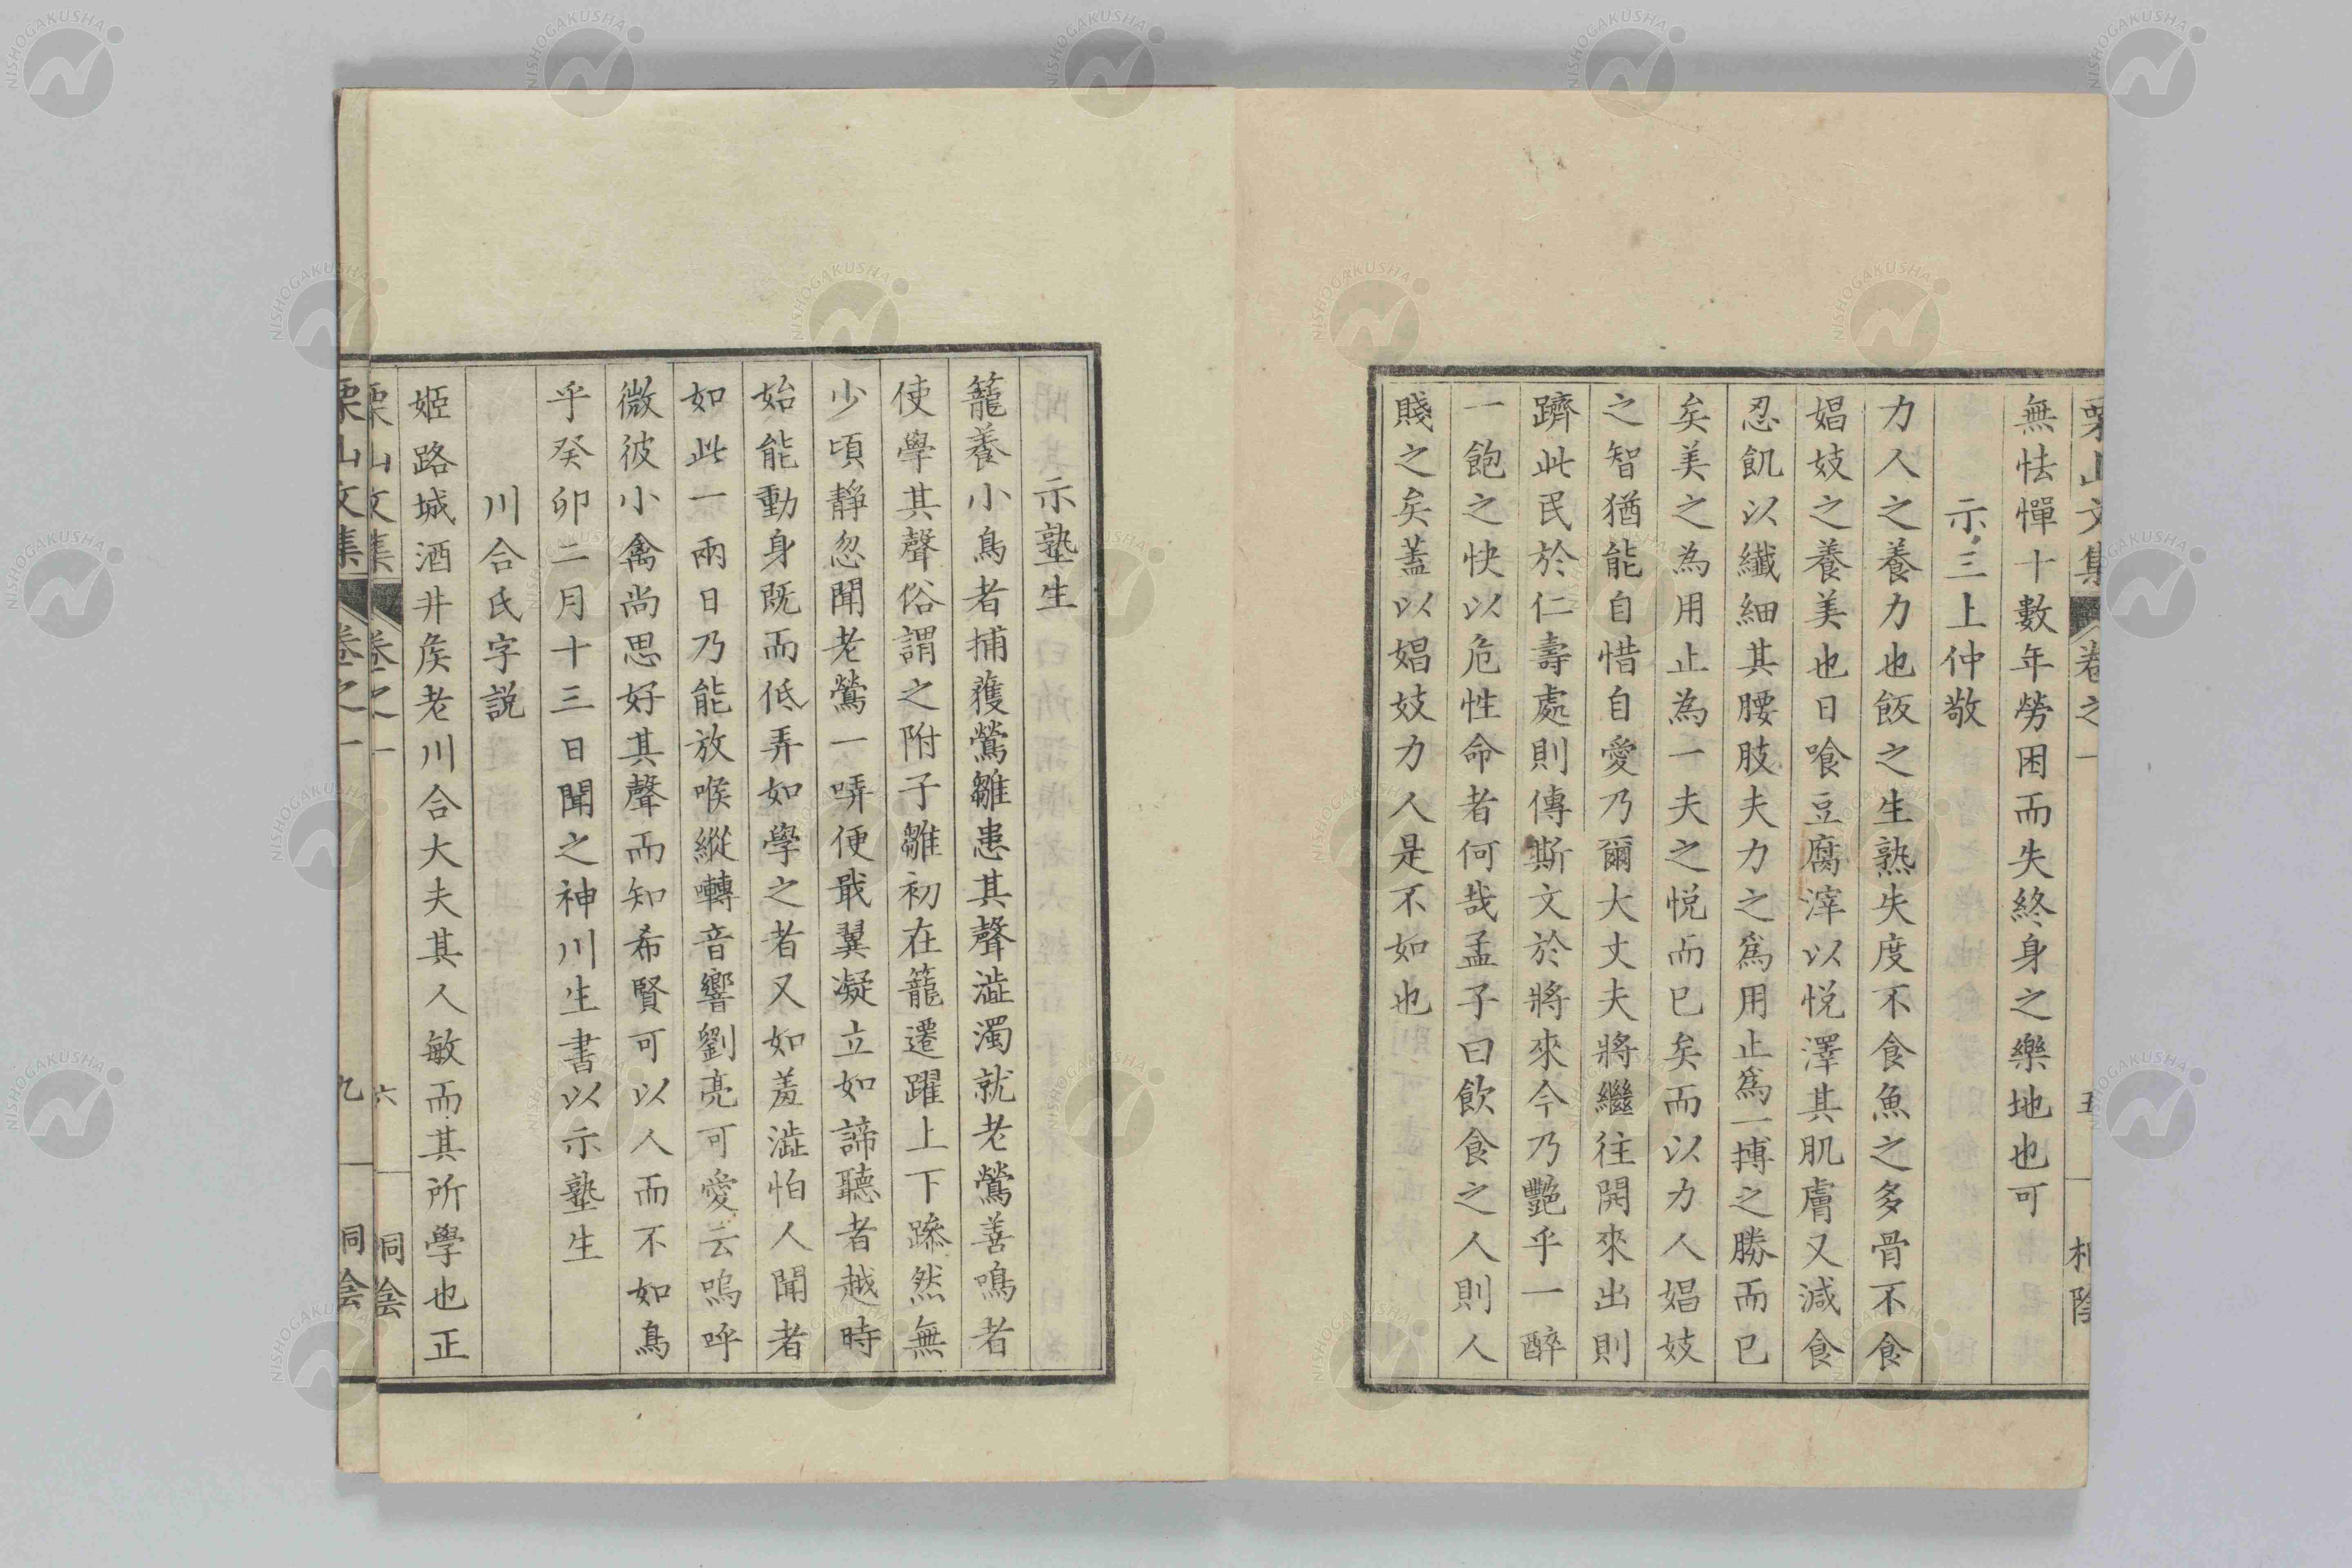 無怯憚十數年勞困而失終身之樂地也可
示三上仲敬
力人之養力也飯之生熟失度不食魚之多骨不食
娼妓之養美也日喰豆腐滓以悅澤其肌膚又減食
忍飢以纖細其腰肢夫力之為用止為一搏之勝而已
矣美之為用止為一夫之悅而已矣而以力人娼妓
之智猶能自惜自愛乃爾大丈夫將繼往開來出則
躋此民於仁壽處則傳斯文於將來今乃艷乎一醉
一飽之快以危性命者何哉孟子曰飲食之人則人
賤之矣蓋以娼妓力人是不如也
示塾生
籠養小鳥者捕獲鶯雛患其聲澁濁就老鶯善鳴者
使學其聲俗謂之附子雛初在籠遷躍上下蹂然無
少頃靜忽聞老鶯一哢便戢翼凝立如諦聽者越時
始能動身既而低弄如學之者又如羞澁怕人聞者
如此一兩日乃能放喉縱囀音響劉亮可愛云嗚呼
微彼小禽尚思好其聲而知希賢可以人而不如鳥
乎癸卯二月十三日聞之神川生書以示塾生
川合氏字説
姬路城酒井矦老川合大夫其人敏而其所學也正
栗山文集 卷之一 六
栗山文集 卷之一 九
NISHOGAKUSHA